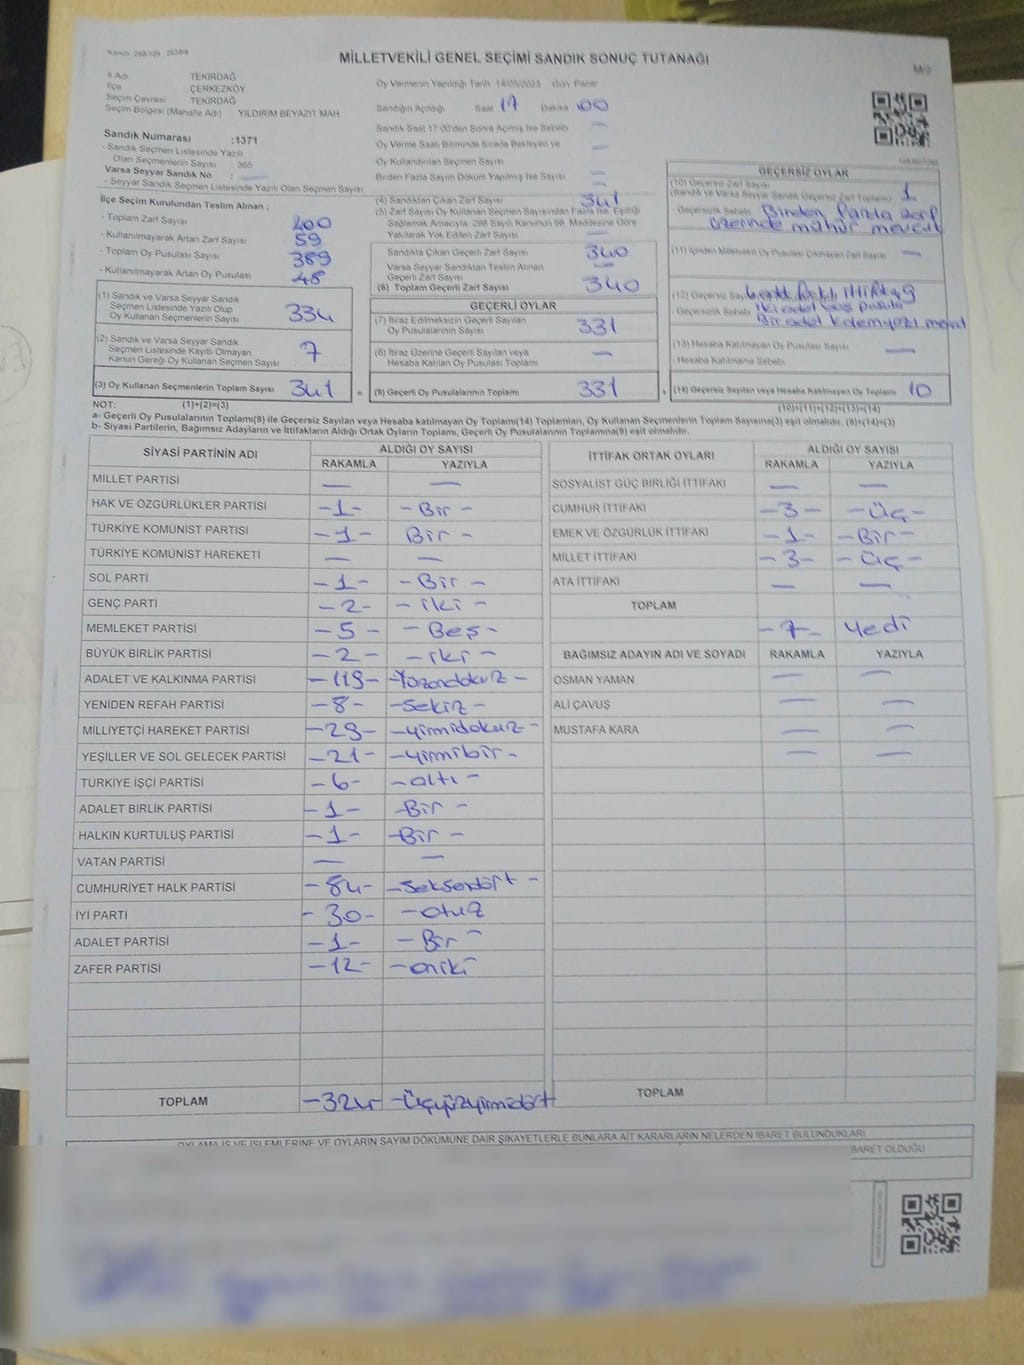 Kanun: 298/105 , 2839/4
MİLLETVEKİLİ GENEL SEÇİMİ SANDIK SONUÇ TUTANAĞI
İl Adı TEKİRDAĞ
İlçe ÇERKEZKÖY
Seçim Çevresi TEKİRDAĞ
Seçim Bölgesi (Mahalle Adı) YILDIRIM BEYAZIT MAH
Oy Vermenin Yapıldığı Tarih 14/05/2023 Gün Pazar
Sandığın Açıldığı Saat 17 Dakika 00
Sandık Saat 17:00'den Sonra Açılmış İse Sebebi —
Oy Verme Saati Bitiminde Sırada Bekleyen ve
Oy Kullandırılan Seçmen Sayısı —
Birden Fazla Sayım Döküm Yapılmış İse Sayısı —
Sandık Numarası :1371
- Sandık Seçmen Listesinde Yazılı
Olan Seçmenlerin Sayısı : 365
Varsa Seyyar Sandık No : —
- Seyyar Sandık Seçmen Listesinde Yazılı Olan Seçmen Sayısı
İlçe Seçim Kurulundan Teslim Alınan ;
- Toplam Zarf Sayısı 400
- Kullanılmayarak Artan Zarf Sayısı 59
- Toplam Oy Pusulası Sayısı 389
- Kullanılmayarak Artan Oy Pusulası 48
(1) Sandık ve Varsa Seyyar Sandık
Seçmen Listesinde Yazılı Olup
Oy Kullanan Seçmenlerin Sayısı 334
(2) Sandık ve Varsa Seyyar Sandık
Seçmen Listesinde Kayıtlı Olmayan
Kanun Gereği Oy Kullanan Seçmen Sayısı 7
(3) Oy Kullanan Seçmenlerin Toplam Sayısı 341
(4) Sandıktan Çıkan Zarf Sayısı 341
(5) Zarf Sayısı Oy Kullanan Seçmen Sayısından Fazla İse, Eşitliği
Sağlamak Amacıyla; 298 Sayılı Kanunun 98. Maddesine Göre
Yakılarak Yok Edilen Zarf Sayısı —
Sandıkta Çıkan Geçerli Zarf Sayısı 340
Varsa Seyyar Sandıktan Teslim Alınan
Geçerli Zarf Sayısı —
(6) Toplam Geçerli Zarf Sayısı 340
GEÇERLİ OYLAR
(7) İtiraz Edilmeksizin Geçerli Sayılan
Oy Pusulalarının Sayısı 331
(8) İtiraz Üzerine Geçerli Sayılan veya
Hesaba Katılan Oy Pusulası Toplamı —
(9) Geçerli Oy Pusulalarının Toplamı 331
GEÇERSİZ OYLAR
(10) Geçersiz Zarf Sayısı
(Sandık ve Varsa Seyyar Sandık Geçersiz Zarf Toplamı) 1
- Geçersizlik Sebebi Birden Fazla zarf
üzerinde mühür mevcut
(11) İçinden Milletvekili Oy Pusulası Çıkmayan Zarf Sayısı —
(12) Geçersiz 9
- Geçersizlik Sebebi iki adet boş pusula
Bir adet kalem yazı mevcut
(13) Hesaba Katılmayan Oy Pusulası Sayısı —
- Hesaba Katılmama Sebebi
(14) Geçersiz Sayılan veya Hesaba Katılmayan Oy Toplamı 10
NOT: (1)+(2)=(3) (10)+(11)+(12)+(13)=(14)
a- Geçerli Oy Pusulalarının Toplamı(9) ile Geçersiz Sayılan veya Hesaba katılmayan Oy Toplamı(14) Toplamları, Oy Kullanan Seçmenlerin Toplam Sayısına(3) eşit olmalıdır. (9)+(14)=(3)
b- Siyasi Partilerin, Bağımsız Adayların ve İttifakların Aldığı Ortak Oyların Toplamı, Geçerli Oy Pusulalarının Toplamına(9) eşit olmalıdır.
SİYASİ PARTİNİN ADI ALDIĞI OY SAYISI
RAKAMLA YAZIYLA
MİLLET PARTİSİ — —
HAK VE ÖZGÜRLÜKLER PARTİSİ -1- -Bir-
TÜRKİYE KOMÜNİST PARTİSİ -1- Bir-
TÜRKİYE KOMÜNİST HAREKETİ — —
SOL PARTİ -1- -Bir-
GENÇ PARTİ -2- -iki-
MEMLEKET PARTİSİ -5- -Beş-
BÜYÜK BİRLİK PARTİSİ -2- -iki-
ADALET VE KALKINMA PARTİSİ -119- -Yüzondokuz-
YENİDEN REFAH PARTİSİ -8- -Sekiz-
MİLLİYETÇİ HAREKET PARTİSİ -29- -yirmidokuz-
YEŞİLLER VE SOL GELECEK PARTİSİ -21- -yirmibir-
TÜRKİYE İŞÇİ PARTİSİ -6- -altı-
ADALET BİRLİK PARTİSİ -1- -Bir-
HALKIN KURTULUŞ PARTİSİ -1- -Bir-
VATAN PARTİSİ — —
CUMHURİYET HALK PARTİSİ -84- -Seksendört-
İYİ PARTİ -30- -otuz
ADALET PARTİSİ -1- -Bir-
ZAFER PARTİSİ -12- -oniki
TOPLAM -324 -Üçyüzyirmidört
İTTİFAK ORTAK OYLARI ALDIĞI OY SAYISI
RAKAMLA YAZIYLA
SOSYALİST GÜÇ BİRLİĞİ İTTİFAKI — —
CUMHUR İTTİFAKI -3- -Üç-
EMEK VE ÖZGÜRLÜK İTTİFAKI -1- -Bir-
MİLLET İTTİFAKI -3- -Üç-
ATA İTTİFAKI — —
TOPLAM -7- Yedi
BAĞIMSIZ ADAYIN ADI VE SOYADI RAKAMLA YAZIYLA
OSMAN YAMAN — —
ALİ ÇAVUŞ — —
MUSTAFA KARA — —
— —
TOPLAM
OYLAMA İŞ VE İŞLEMLERİNE VE OYLARIN SAYIM DÖKÜMÜNE DAİR ŞİKAYETLERLE BUNLARA AİT KARARLARIN NELERDEN İBARET BULUNDUKLARI
BARET OLDUĞU